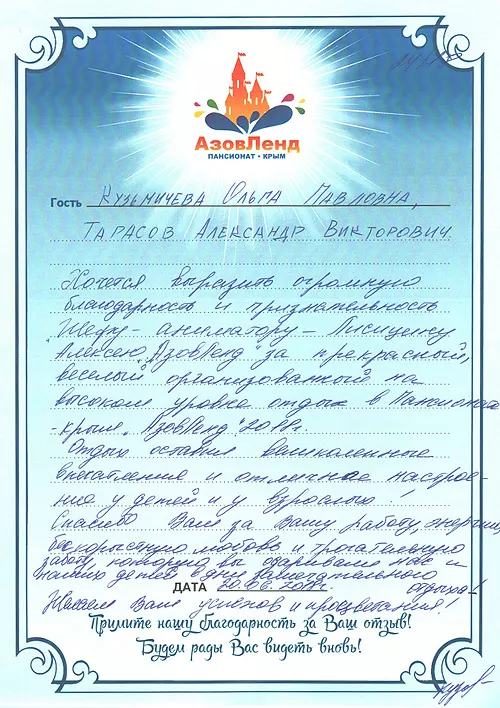 АзовЛенд
ПАНСИОНАТ • КРЫМ
Гость Кузьмичева Ольга Павловна,
Тарасов Александр Викторович
Хочется выразить огромную
благодарность и признательность
Шефу-аниматору - Лисицену
Алексею "АзовЛенд" за прекрасный,
веселый организованный на
высоком уровне отдых в Пансионате
-Крыма "АзовЛенд"
Отдых оставил великолепные
впечатления и отличное настрое-
ние у детей и у взрослых!
Спасибо Вам за Вашу работу, энергию,
бескорыстную любовь и трогательную
заботу, которую вы одаривали нас и
наших детей в дни замечательного
ДАТА отдыха!
Желаем Вам успехов и процветания!
Примите нашу благодарность за Ваш отзыв!
Будем рады Вас видеть вновь!